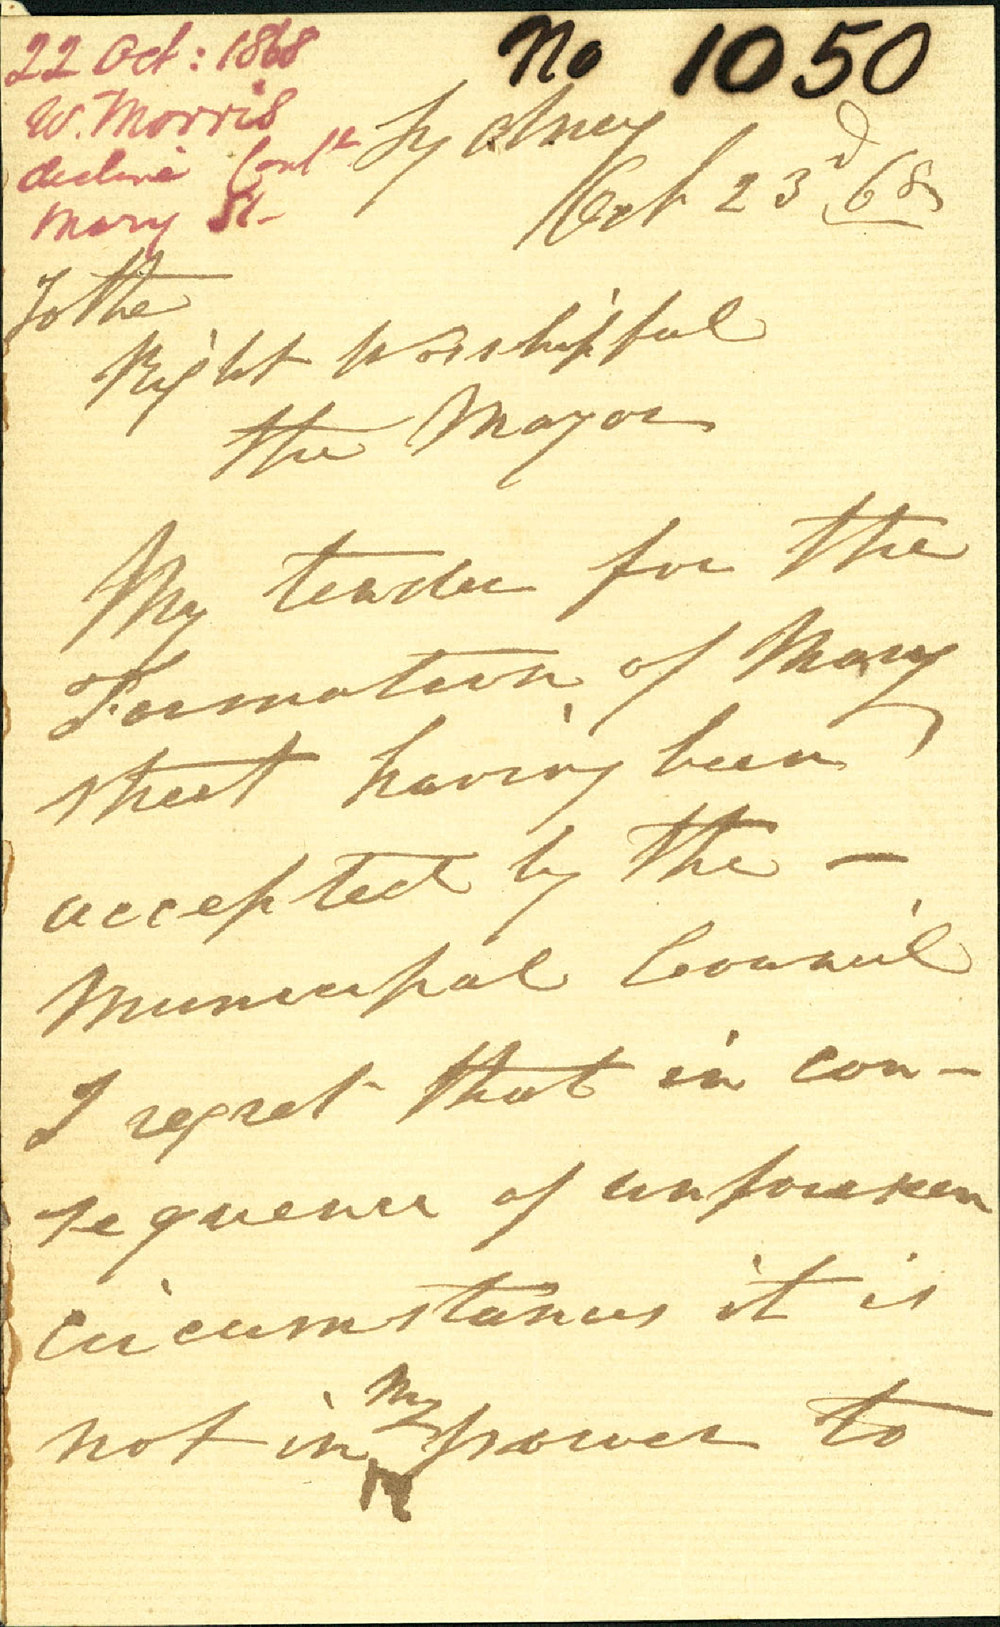 22 Oct: 1868
W. Morris
decline Cont
Mary St-
No 1050
Sydney
Oct 23rd 68
To the
Right Worshipful
the Mayor
My tender for the
Formation of Mary
street having been
accepted by the -
Municipal Council
I regret that in con-
sequence of unforseen
circumstances it is
not in my power to